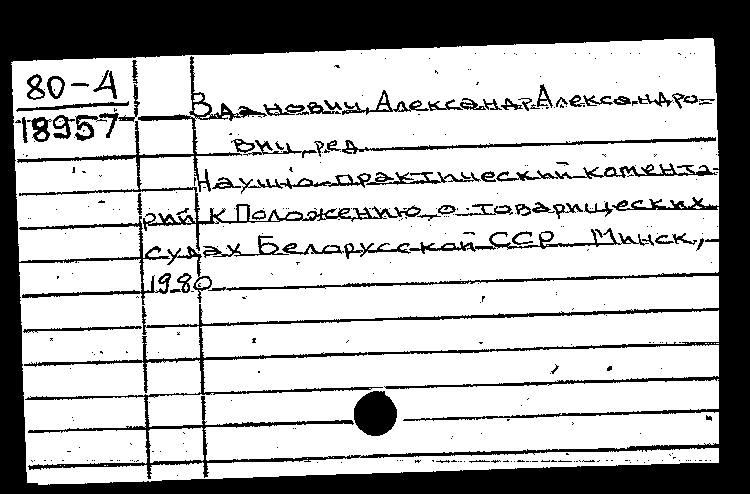 80-4
18957
Зданович, Александр Александро=
вич, ред.
Научно-практический комента-
рий к Положению о товарищеских
судах Беларусской ССР Минск,
1980